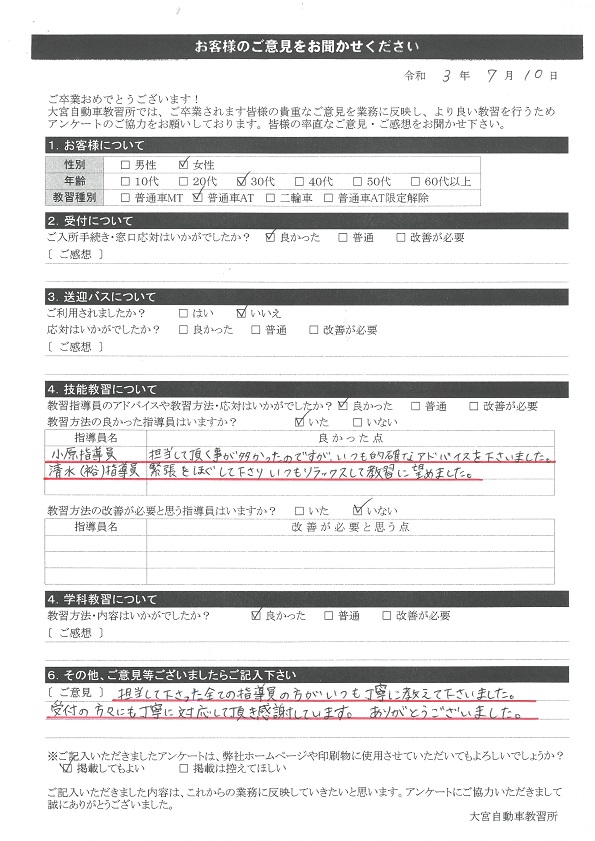 お客様のご意見をお聞かせください
令和 3 年 7 月 10 日
ご卒業おめでとうございます！
大宮自動車教習所では、ご卒業されます皆様の貴重なご意見を業務に反映し、より良い教習を行うため
アンケートのご協力をお願いしております。皆様の率直なご意見・ご感想をお聞かせ下さい。
1. お客様について
性別 □ 男性 ☑ 女性
年齢 □ 10代 □ 20代 ☑ 30代 □ 40代 □ 50代 □ 60代以上
教習種別 □ 普通車MT ☑ 普通車AT □ 二輪車 □ 普通車AT限定解除
2. 受付について
ご入所手続き・窓口応対はいかがでしたか？ ☑ 良かった □ 普通 □ 改善が必要
〔 ご感想 〕
3. 送迎バスについて
ご利用されましたか？ □ はい ☑ いいえ
応対はいかがでしたか？ □ 良かった □ 普通 □ 改善が必要
〔 ご感想 〕
4. 技能教習について
教習指導員のアドバイスや教習方法・応対はいかがでしたか？ ☑ 良かった □ 普通 □ 改善が必要
教習方法の良かった指導員はいますか？ ☑ いた □ いない
指導員名 良かった点
小原指導員 担当して頂く事が多かったのですが、いつも的確なアドバイスを下さいました。
清水(裕)指導員 緊張をほぐして下さり いつもリラックスして教習に望めました。
教習方法の改善が必要と思う指導員はいますか？ □ いた ☑ いない
指導員名 改善が必要と思う点
4. 学科教習について
教習方法・内容はいかがでしたか？ ☑ 良かった □ 普通 □ 改善が必要
〔 ご感想 〕
6. その他、ご意見等ございましたらご記入下さい
〔 ご意見 〕 担当して下さった全ての指導員の方がいつも丁寧に教えて下さいました。
受付の方々にも丁寧に対応して頂き感謝しています。 ありがとうございました。
※ご記入いただきましたアンケートは、弊社ホームページや印刷物に使用させていただいてもよろしいでしょうか？
☑ 掲載してもよい □ 掲載は控えてほしい
ご記入いただきました内容は、これからの業務に反映していきたいと思います。アンケートにご協力いただきまして
誠にありがとうございました。
大宮自動車教習所